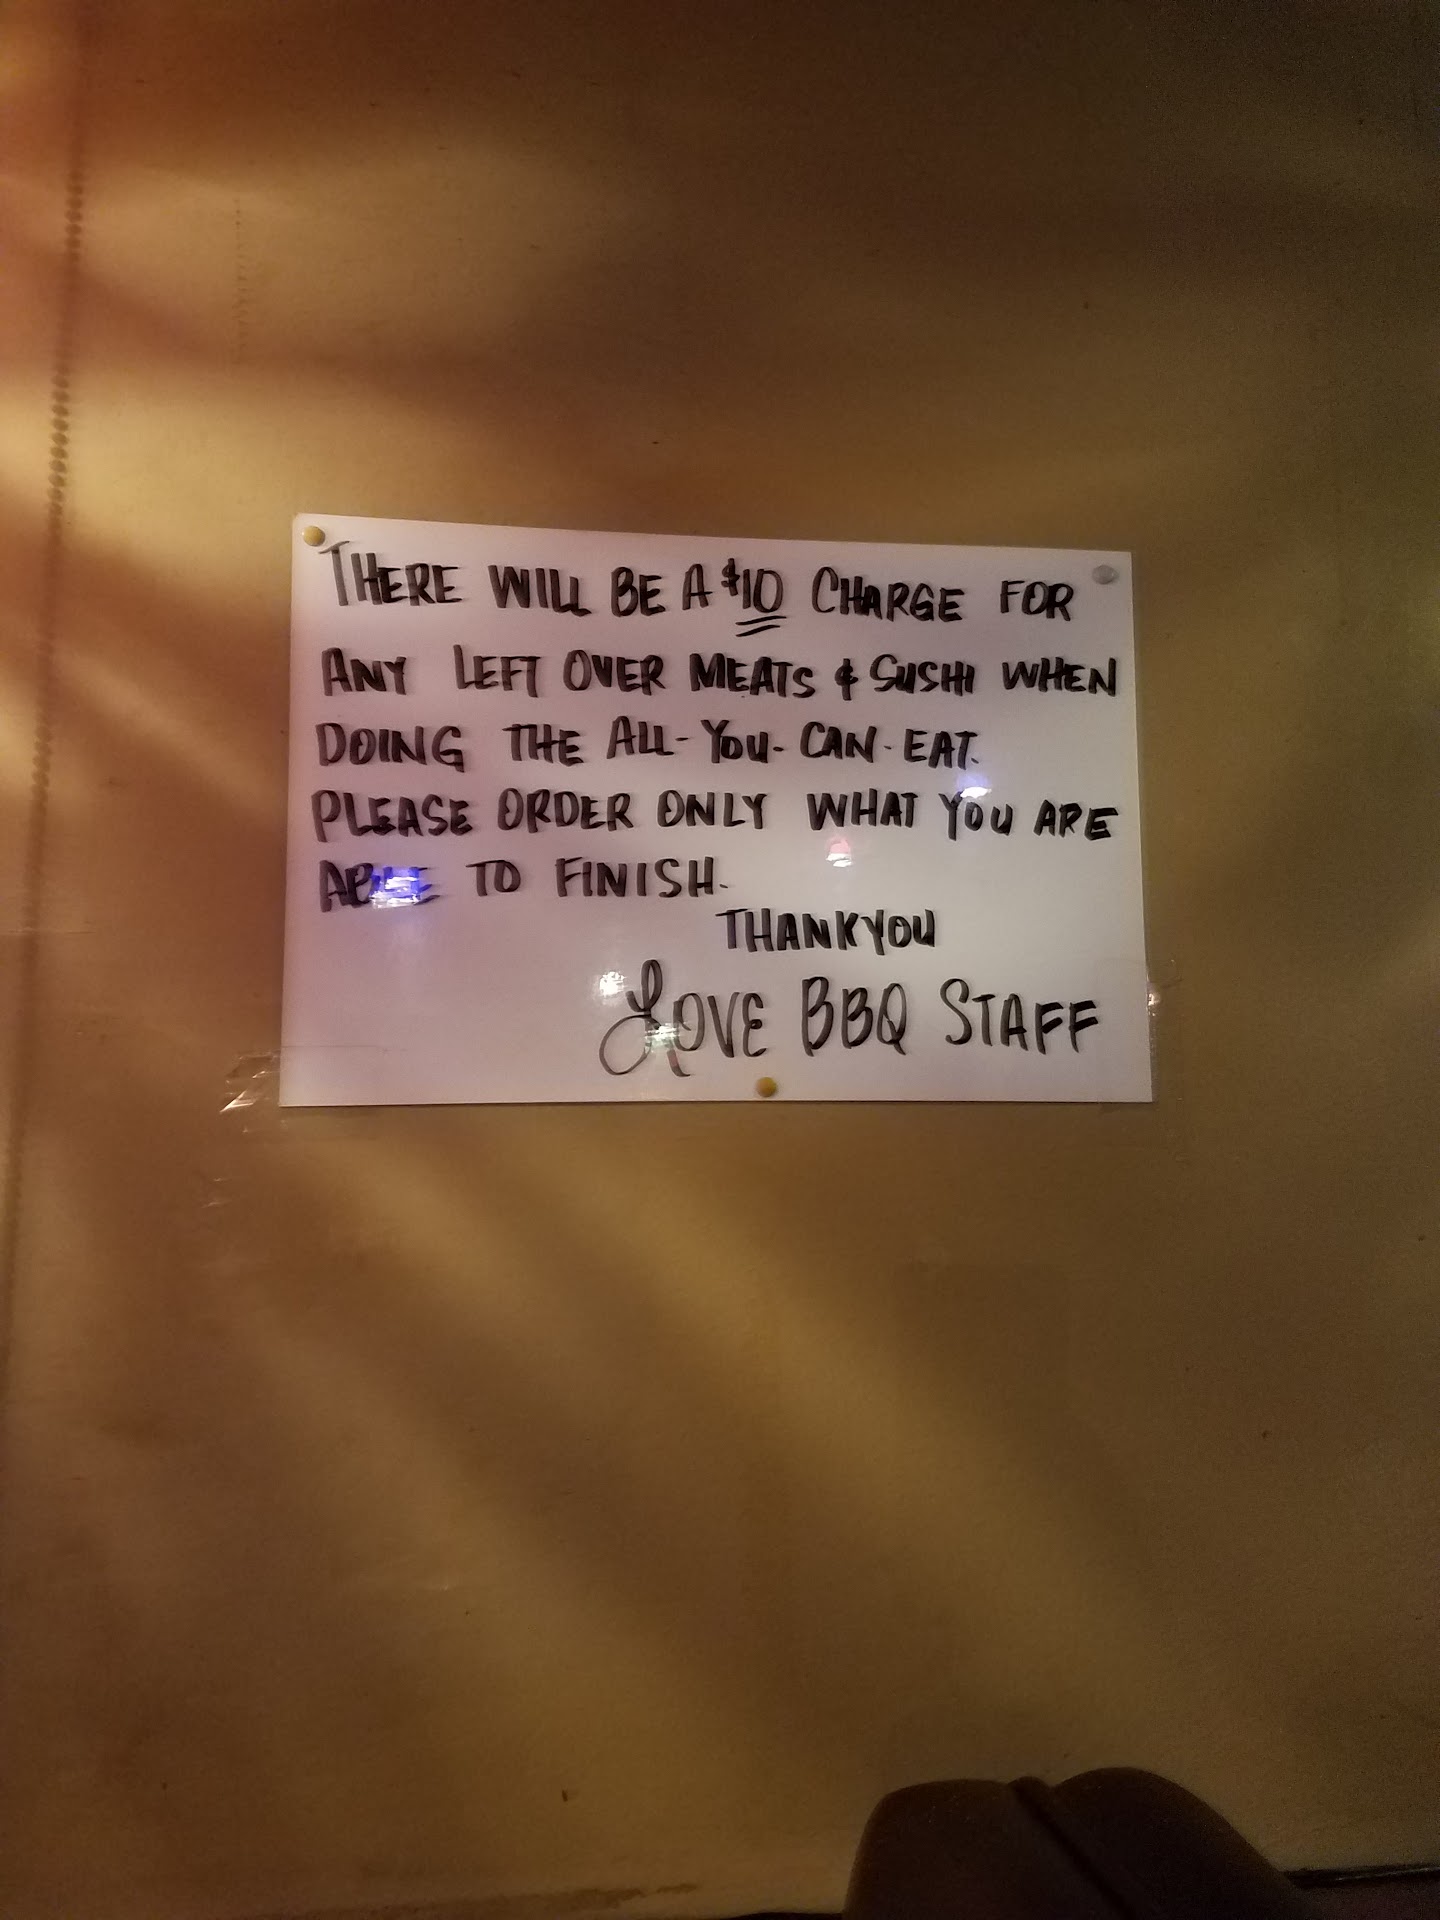 THERE WILL BE A $10 CHARGE FOR
ANY LEFT OVER MEATS & SUSHI WHEN
DOING THE ALL-YOU-CAN-EAT.
PLEASE ORDER ONLY WHAT YOU ARE
ABLE TO FINISH.
THANKYOU
LOVE BBQ STAFF